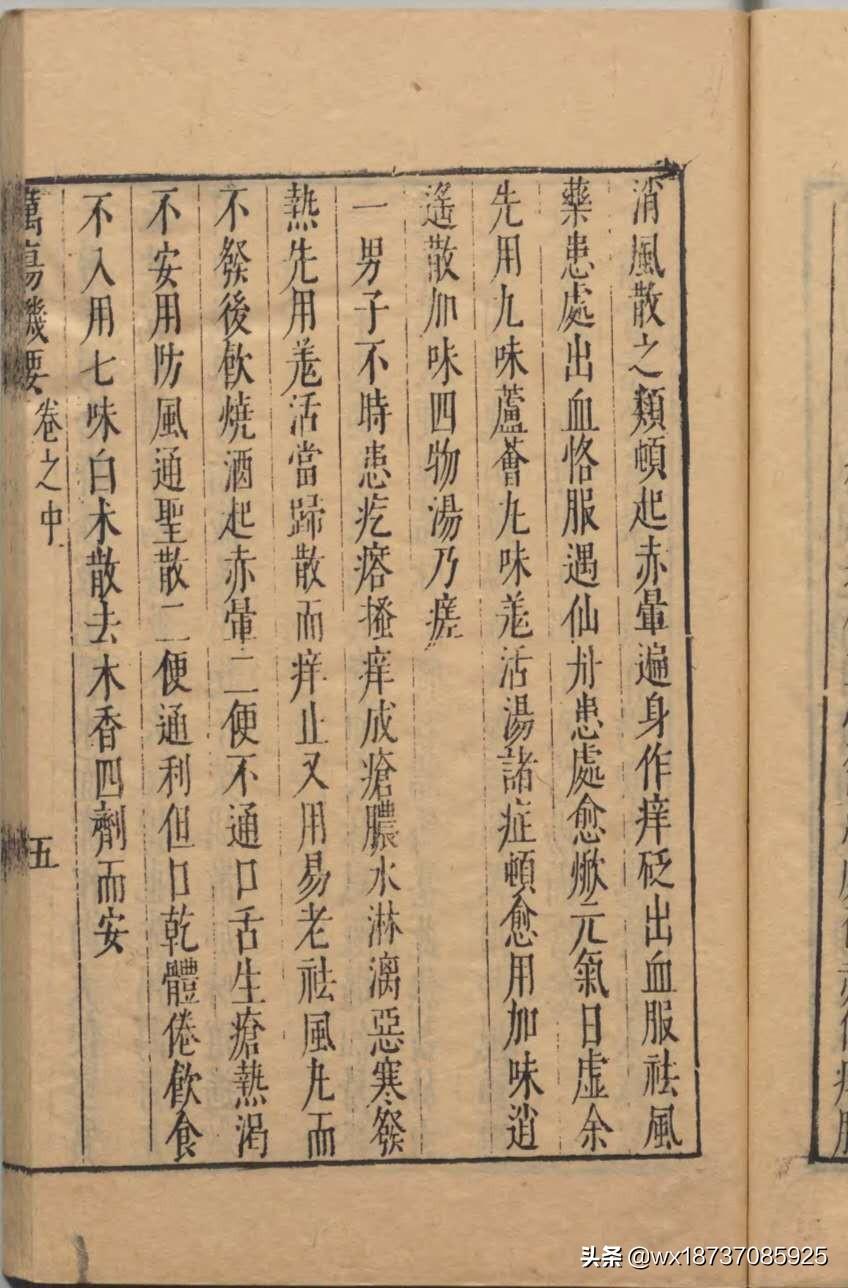 消風散之類頓起赤暈遍身作痒砭出血服祛風
藥患處出血恪服遇仙丹患處愈焮元氣日虛余
先用九味蘆薈丸味羗活湯諸症頓愈用加味逍
遙散加味四物湯乃瘥
一男子不時患疙瘩搔痒成瘡膿水淋漓惡寒發
熱先用羗活當歸散而痒止又用易老祛風丸而
不發後飲燒酒起赤暈二便不通口舌生瘡熱渴
不安用防風通聖散二便通利但口乾體倦飲食
不入用七味白术散去木香四劑而安
卷之中
五
头条 @wx18737085925